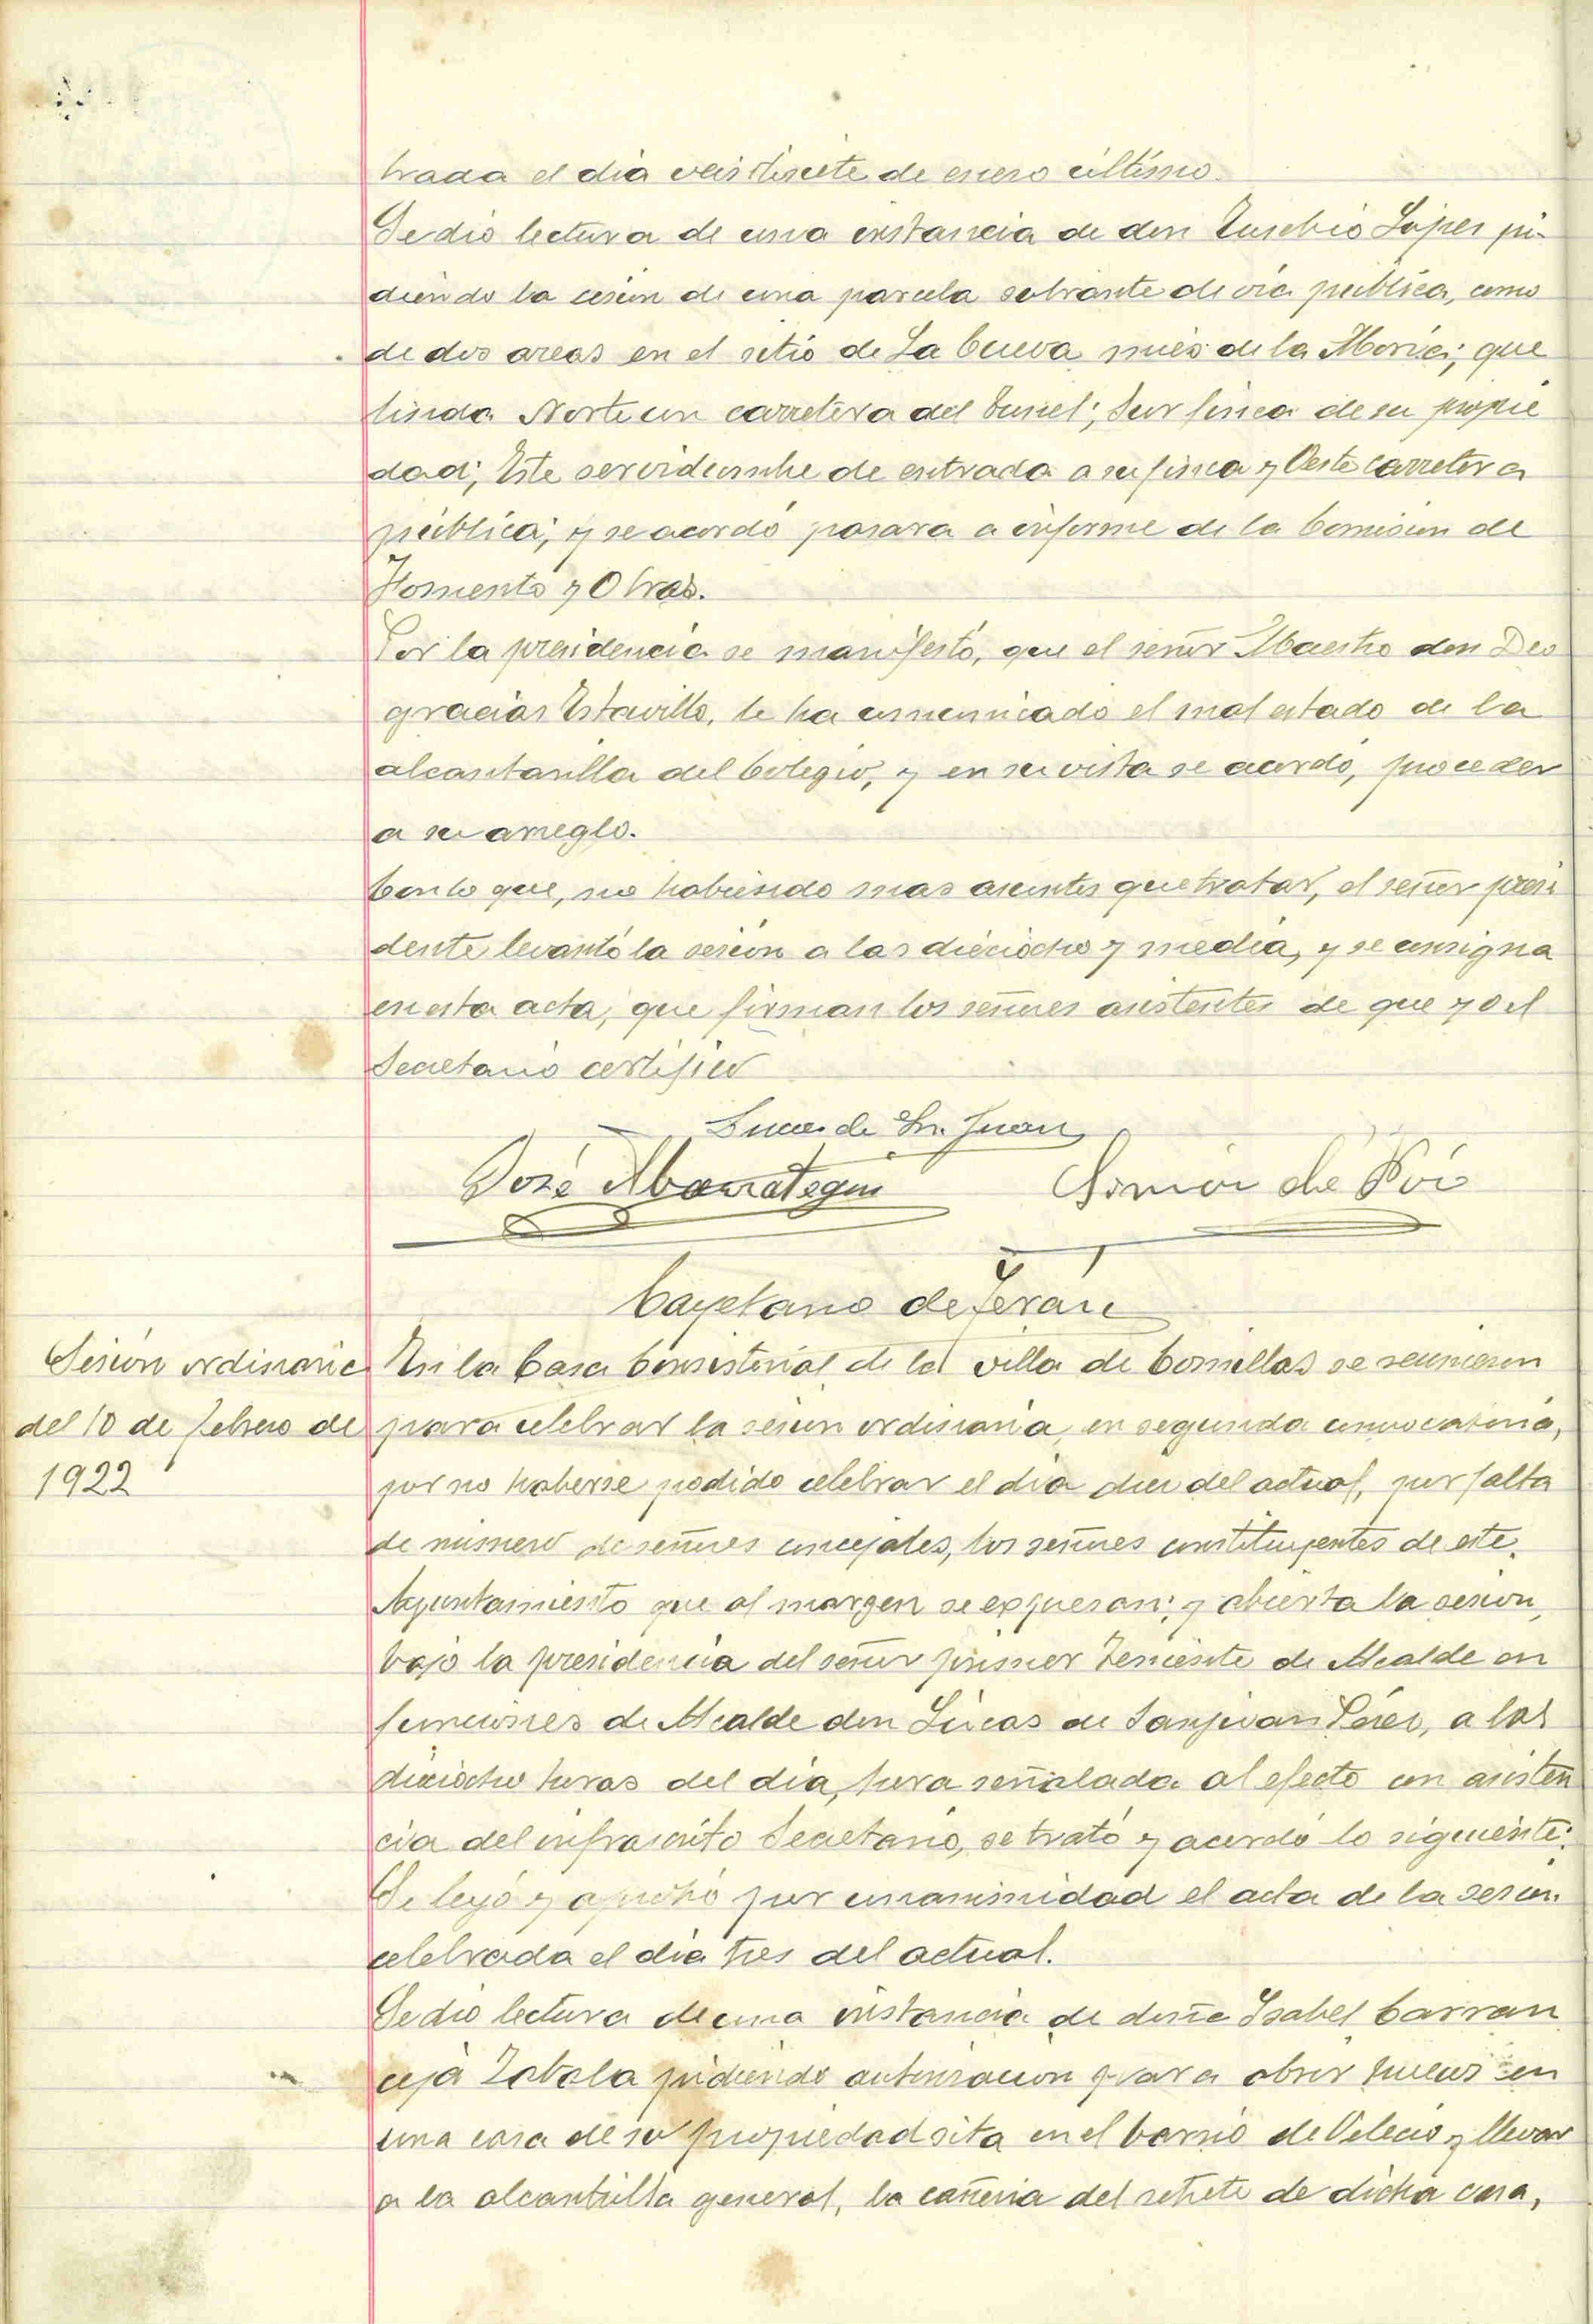 brada el dia veistisiete de enero último.
Se dió lectura de una instancia de don Eusebio López pi-
diendo la cesión de una parcela sobrante de via publica, como
de dos areas en el sitio de La Cueva, mies de la Moria; que
linda Norte con carretera del tunel; Sur finca de su propie
dad; Este servidumbre de entrada a su finca y Oeste carretera
pública; y se acordó pasara a informe de la Comisión de
Fomento y Obras.
Por la presidencia se manifestó, que el señor Maestro don Deo
gracias Estavillo, le ha comunicado el mal estado de la
alcantarilla del Colegio, y en su vista se acordó, proceder
a su arreglo.
Con lo que, no habiendo mas asuntos que tratar, el señor presi
dente levantó la sesión a las dieciocho y media, y se consigna
en esta acta, que firman los señores asistentes de que yo el
Secretario certifico
Lucas de Sn. Juan
José Abarrategui Simón de Poó
Cayetano de Terán
Sesión ordinaria
del 10 de febrero de
1922
En la Casa Consistorial de la villa de Comillas se reunieron
para celebrar la sesión ordinaria, en segunda convocatoria,
por no haberse podido celebrar el dia diez del actual, por falta
de número de señores concejales, los señores constituyentes de este
Ayuntamiento que al margen se expresan; y abierta la sesión,
bajo la presidencia del señor primer Teniente de Alcalde en
funciones de Alcalde don Lúcas de Sanjuan Pérez, a las
dieciocho horas del dia, hora señalada al efecto con asisten
cia del infrascrito Secretario, se trató y acordó lo siguiente:
Se leyó y aprobó por unanimidad el acta de la sesión
celebrada el dia tres del actual.
Se dió lectura de una instancia de doña Isabel Carran
ceja Zabala pidiendo autorización para abrir huecos en
una casa de su propiedad sita en el barrio de Velecio y llevar
a la alcantrilla general, la cañeria del retrete de dicha casa,